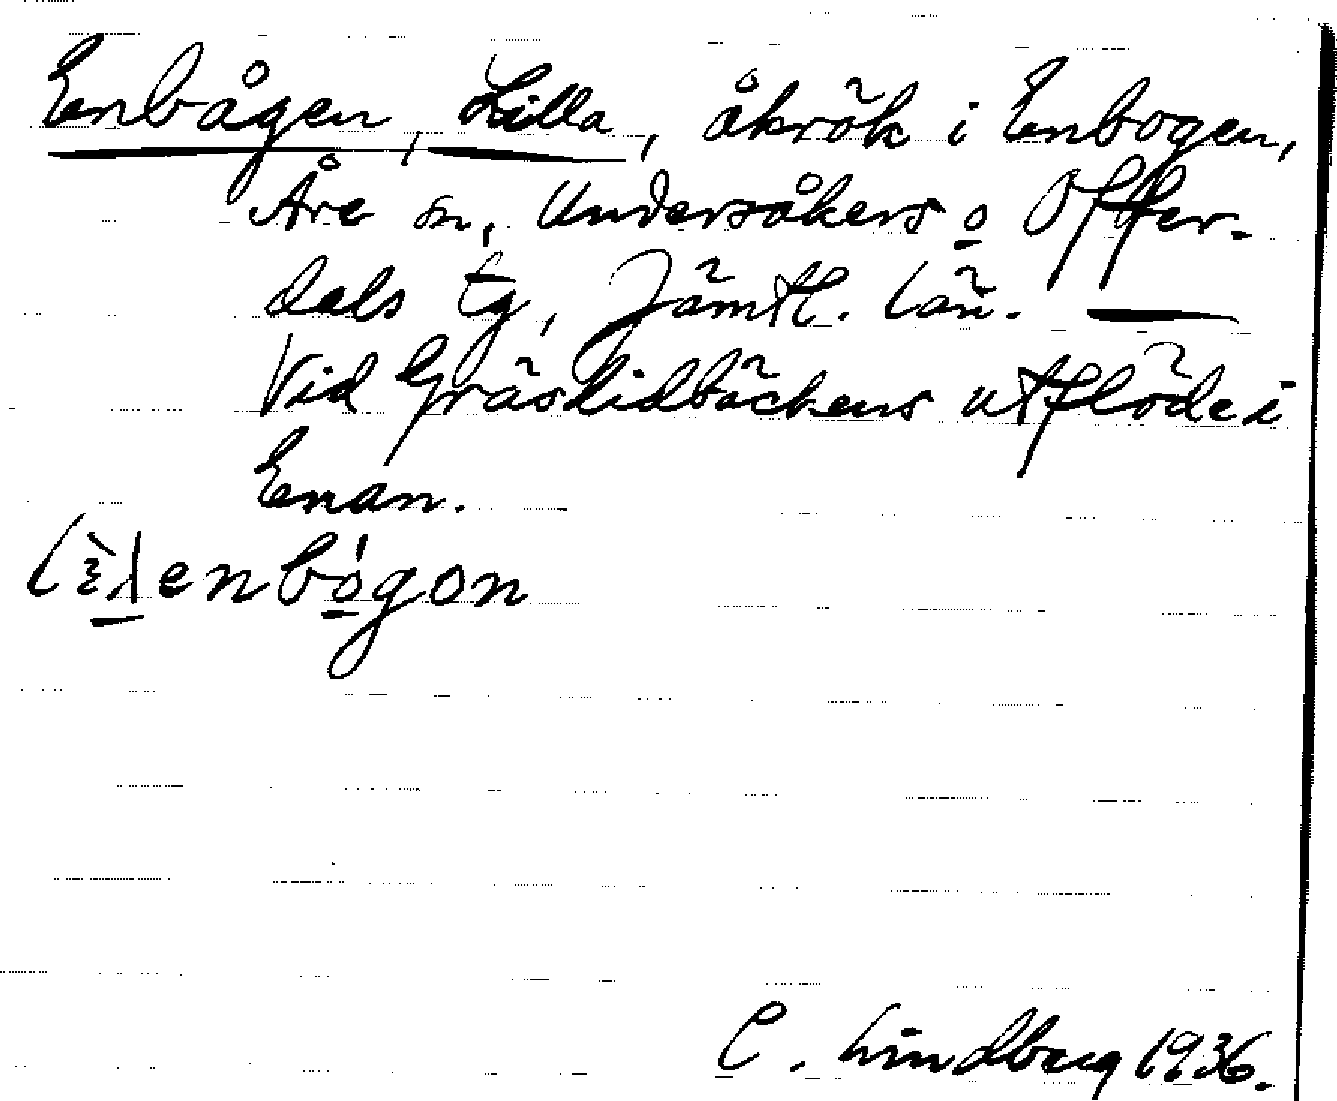 Enbågen, Lilla, åkrök i Enbogen,
Åre sn, Undersåkers o Offer-
dals tg, Jämtl. län. —
Vid Gräslidbäckens utflöde i
Enan.
enbógon
C. Lindberg 1936.